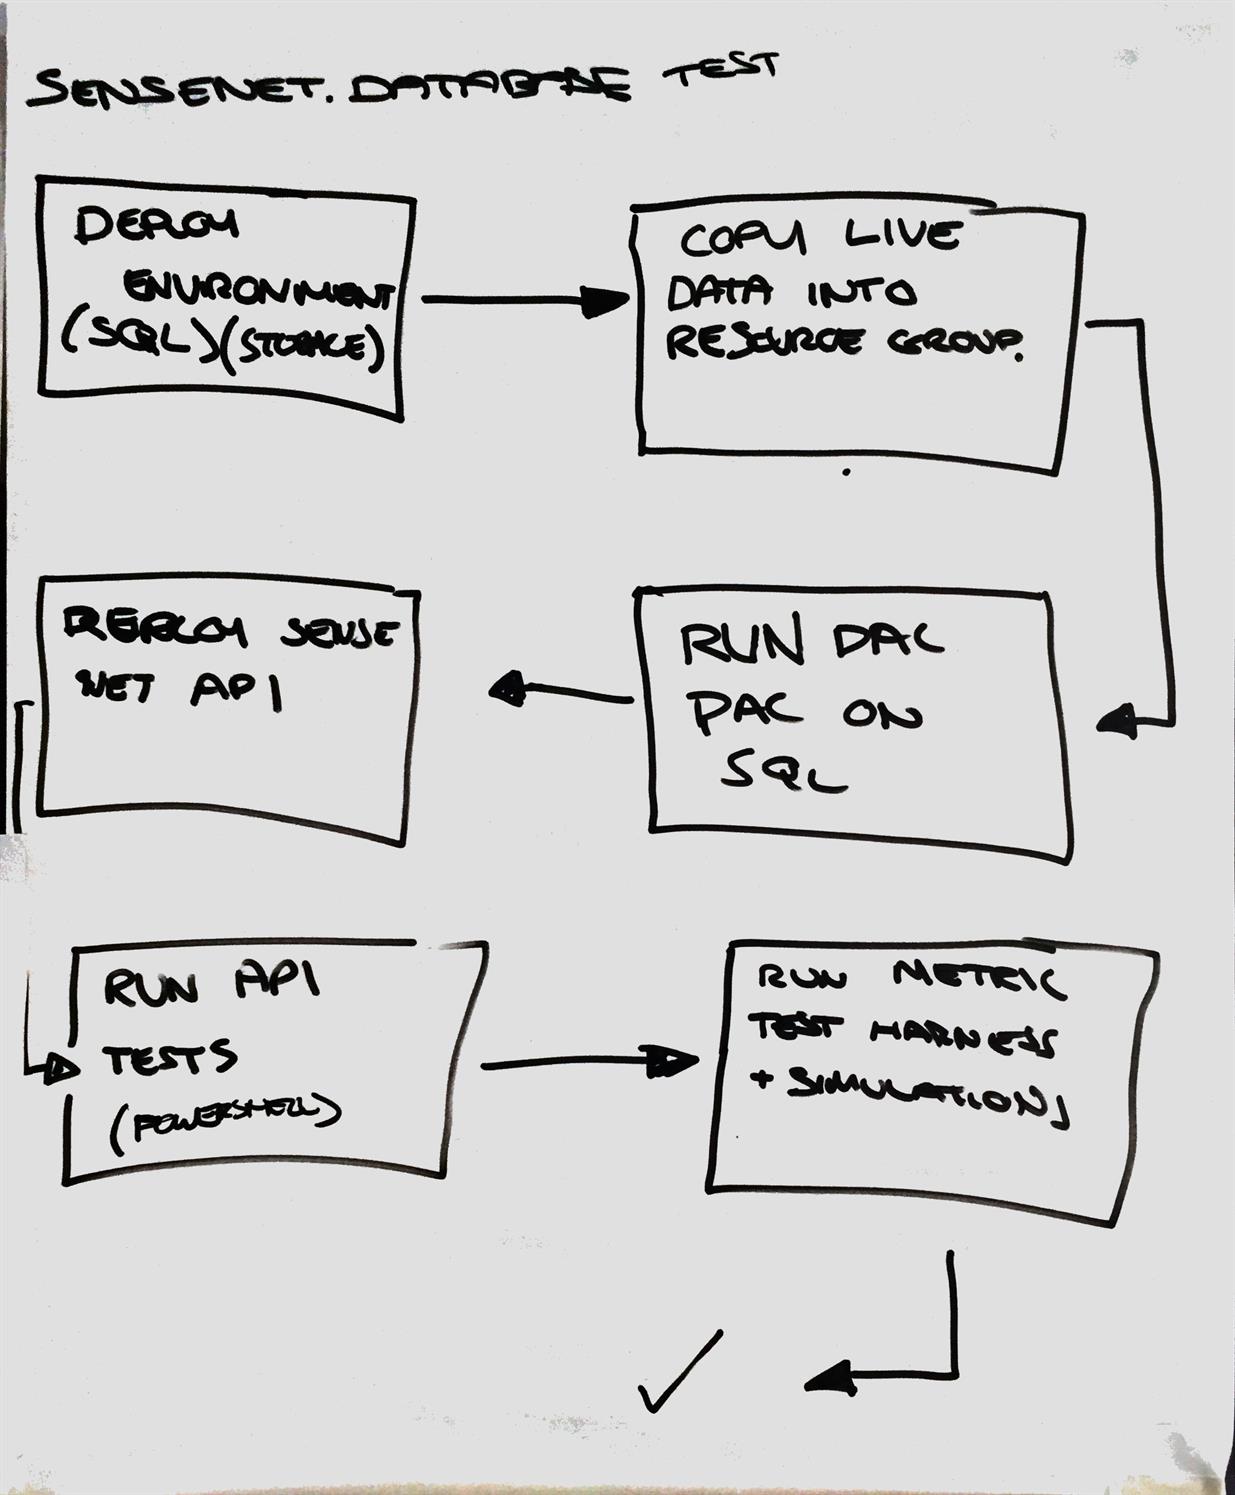 SENSENET.DATABASE TEST
DEPLOY
ENVIRONMENT
(SQL)(STORAGE)
COPY LIVE
DATA INTO
RESOURCE GROUP.
REDEPLOY SENSE
NET API
RUN DAC
PAC ON
SQL
RUN API
TESTS
(POWERSHELL)
RUN METRIC
TEST HARNESS
+ SIMULATIONS